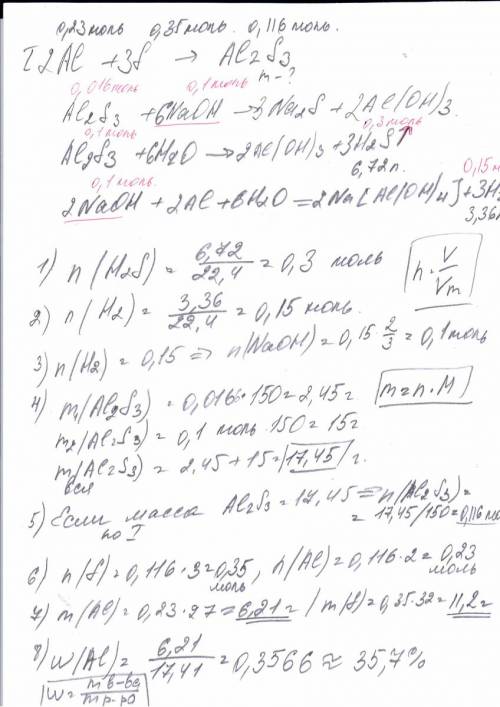 0,23 моль 0,35 моль. 0,116 моль.
I 2Al + 3S → Al2S3
m - ?
0,016 моль 0,1 моль
Al2S3 + 6NaOH → 3Na2S + 2Al(OH)3.
0,1 моль 0,3 моль
Al2S3 + 6H2O → 2Al(OH)3 + 3H2S↑
6,72 л.
0,1 моль. 0,15 м
2NaOH + 2Al + 6H2O = 2Na[Al(OH)4] + 3H
3,36л
1) n(H2S) = 6,72/22,4 = 0,3 моль
n = V/Vm
2) n(H2) = 3,36/22,4 = 0,15 моль.
3) n(H2) = 0,15 => n(NaOH) = 0,15 · 2/3 = 0,1 моль
4) m1(Al2S3) = 0,0166 · 150 = 2,45 г
m = n · M
m2(Al2S3) = 0,1 моль · 150 = 15 г
m(Al2S3) = 2,45 + 15 = 17,45 г.
вся
5) Если масса Al2S3 = 17,45 => n(Al2S3) =
по I = 17,45/150 = 0,116 мо
6) n(S) = 0,116 · 3 = 0,35 моль, n(Al) = 0,116 · 2 = 0,23 моль
7) m(Al) = 0,23 · 27 = 6,21 г / m(S) = 0,35 · 32 = 11,2 г
8) W(Al) = 6,21/17,41 = 0,3566 ≈ 35,7%
W = m в-ва/m р-ра